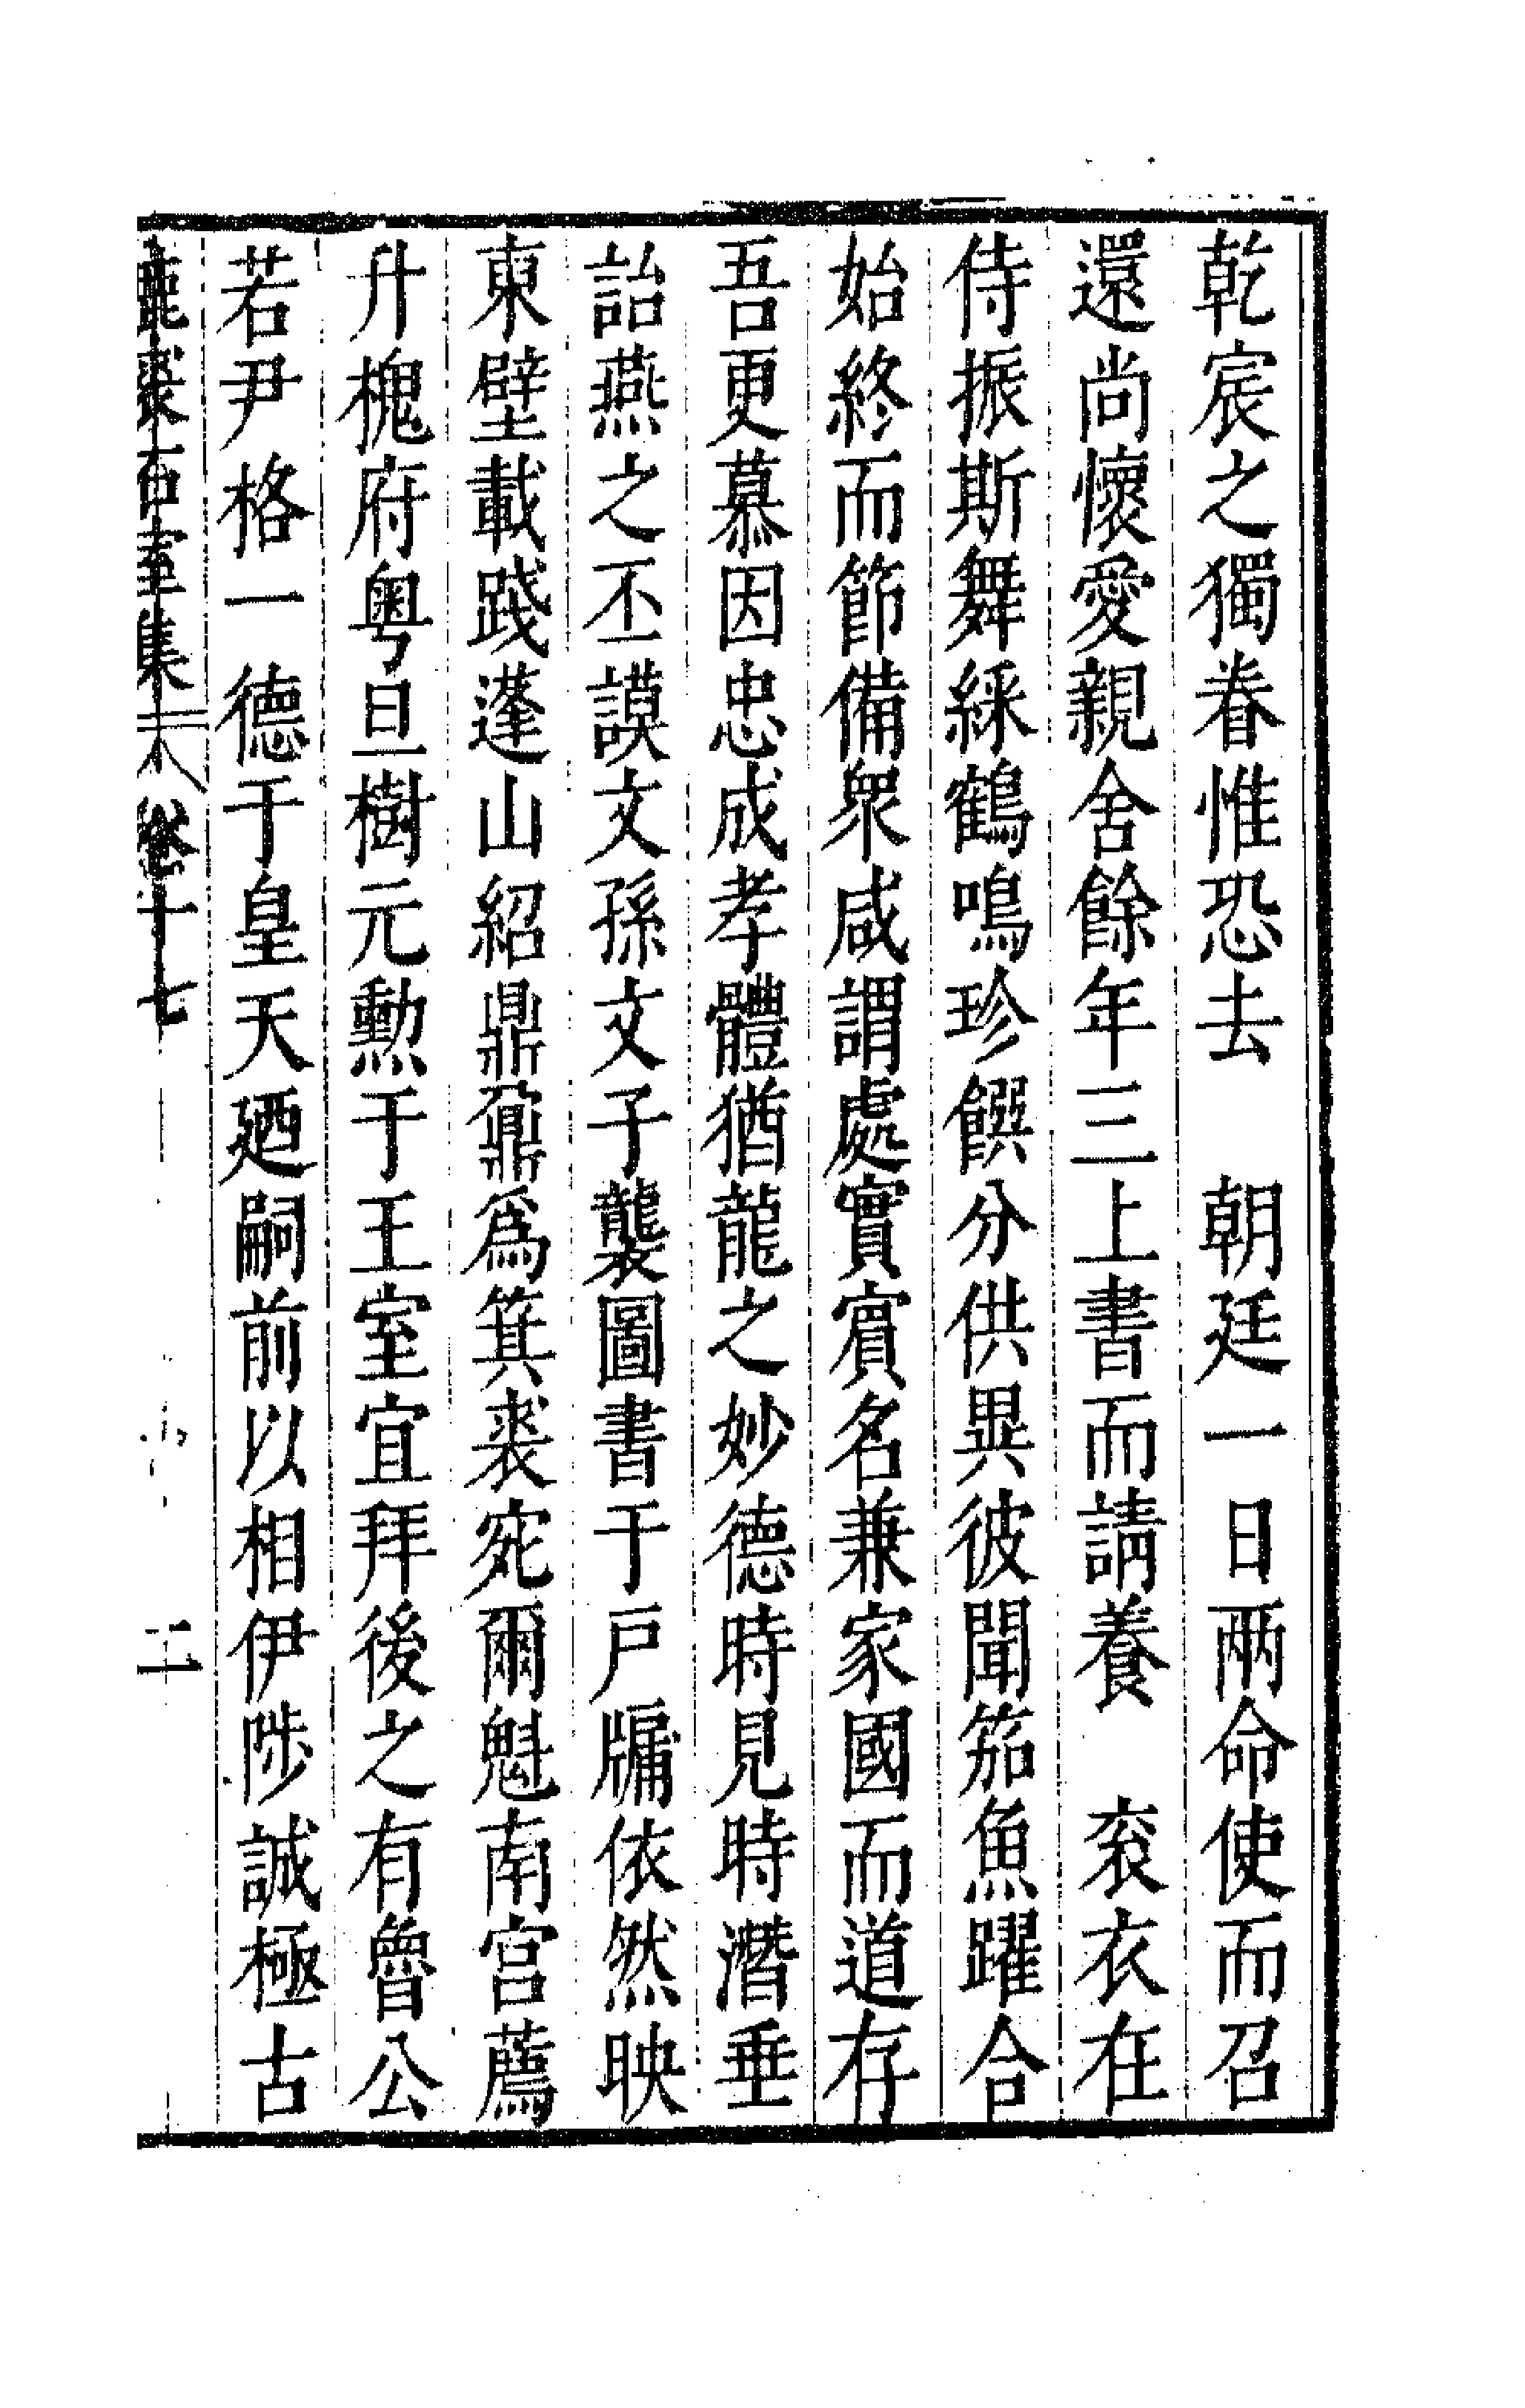 乾宸之獨眷惟恐去　朝廷一日兩命使而召
還尚懷愛親舍餘年三上書而請養　衮衣在
侍振斯舞綵鶴鳴珍饌分供異彼聞笳魚躍合
始終而節備衆咸謂處實賓名兼家國而道存
吾更慕因忠成孝體猶龍之妙德時見時潛垂
詒燕之丕謨文孫文子襲圖書于戸牖依然映
東壁載踐蓬山紹鼎鼐爲箕裘宛爾魁南宮薦
升槐府粤旦樹元勳于王室宜拜後之有魯公
若尹格一德于皇天廼嗣前以相伊陟誠極古
鹿裘石室集 卷十七 二